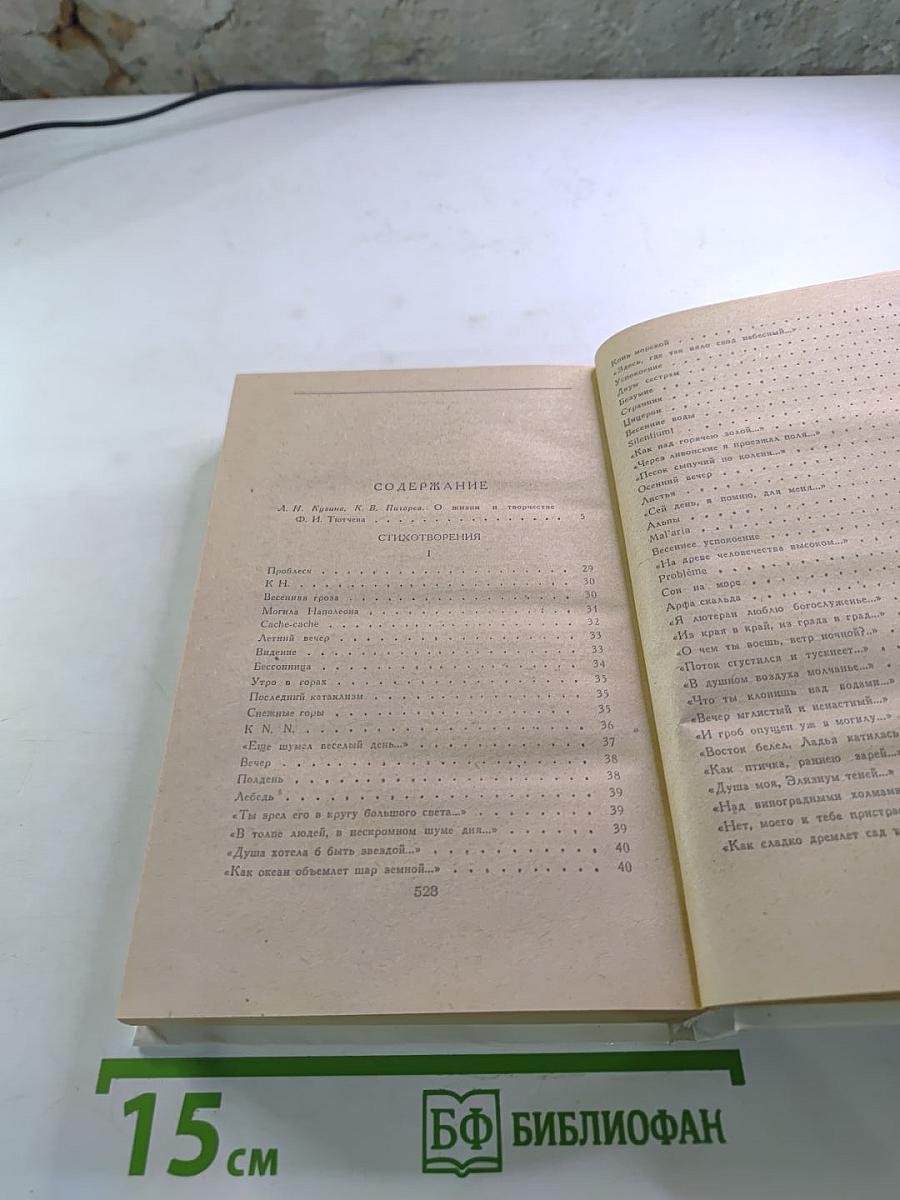 СОДЕРЖАНИЕ
А. Н. Кузина, К. В. Пигарев. О жизни и творчестве
Ф. И. Тютчева . . . . . . . . . . . . . . 5
СТИХОТВОРЕНИЯ
I
Проблеск . . . . . . . . . . . . . . 29
К Н. . . . . . . . . . . . . . . 30
Весенняя гроза . . . . . . . . . . . . . . 30
Могила Наполеона . . . . . . . . . . . . . . 31
Cache-cache . . . . . . . . . . . . . . 32
Летний вечер . . . . . . . . . . . . . . 33
Видение . . . . . . . . . . . . . . 33
Бессонница . . . . . . . . . . . . . . 34
Утро в горах . . . . . . . . . . . . . . 35
Последний катаклизм . . . . . . . . . . . . . . 35
Снежные горы . . . . . . . . . . . . . . 35
К N. N. . . . . . . . . . . . . . . 36
«Еще шумел веселый день...» . . . . . . . . . . 37
Вечер . . . . . . . . . . . . . . 38
Полдень . . . . . . . . . . . . . . 38
Лебедь . . . . . . . . . . . . . . 39
«Ты зрел его в кругу большого света...» . . . . . . . . 39
«В толпе людей, в нескромном шуме дня...» . . . . . . 39
«Душа хотела б быть звездой...» . . . . . . . . . . 40
«Как океан объемлет шар земной...» . . . . . . . . . 40
528
Конь морской
«Здесь, где так вяло свод небесный...»
Успокоение
Двум сестрам
Безумие
Странник
Цицерон
Весенние воды
Silentium!
«Как над горячею золой...»
«Через ливонские я проезжал поля...»
«Песок сыпучий по колени...»
Осенний вечер
Листья
«Сей день, я помню, для меня...»
Альпы
Mal'aria
Весеннее успокоение
«На древе человечества высоком...»
Problème
Сон на море
Арфа скальда
«Я лютеран люблю богослуженье...»
«Из края в край, из града в град...»
«О чем ты воешь, ветр ночной?..»
«Поток сгустился и тускнеет...»
«В душном воздуха молчанье...»
«Что ты клонишь над водами...»
«Вечер мглистый и ненастный...»
«И гроб опущен уж в могилу...»
«Восток белел. Ладья катилась
«Как птичка, раннею зарей...»
«Душа моя, Элизиум теней...»
«Над виноградными холмами
«Нет, моего к тебе пристрас
«Как сладко дремлет сад
15 см
БФ БИБЛИОФАН